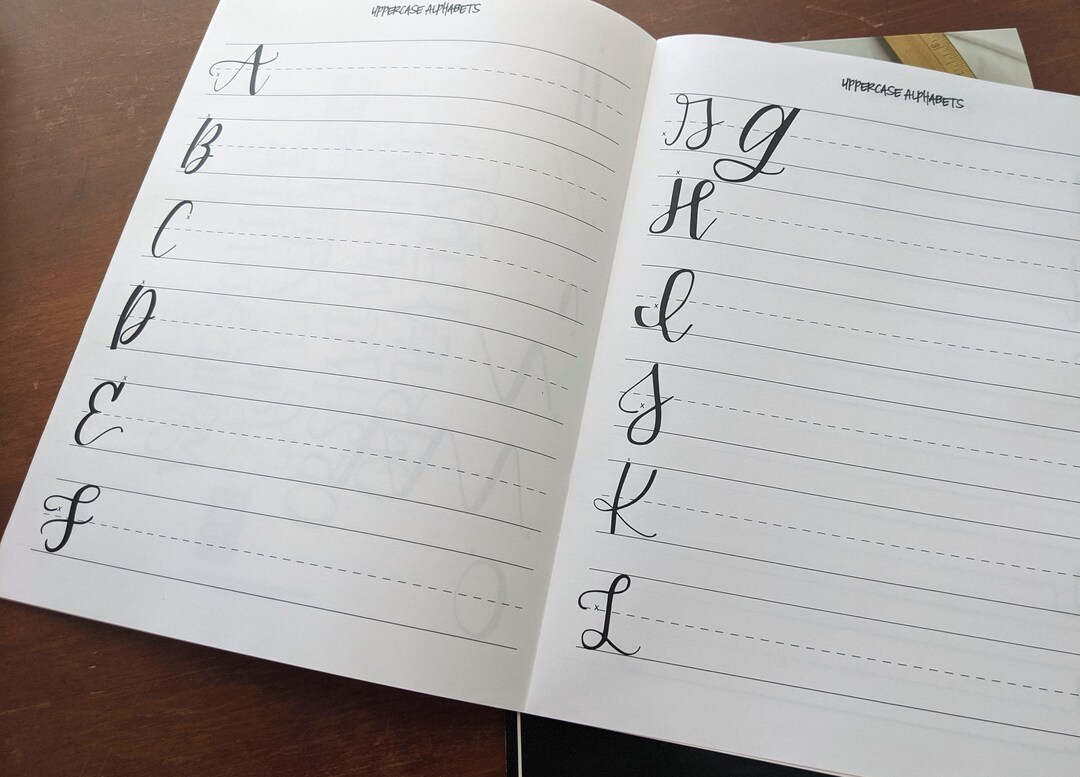 UPPERCASE ALPHABETS
A
B
C
D
E
F
UPPERCASE ALPHABETS
G g
H
I
J
K
L